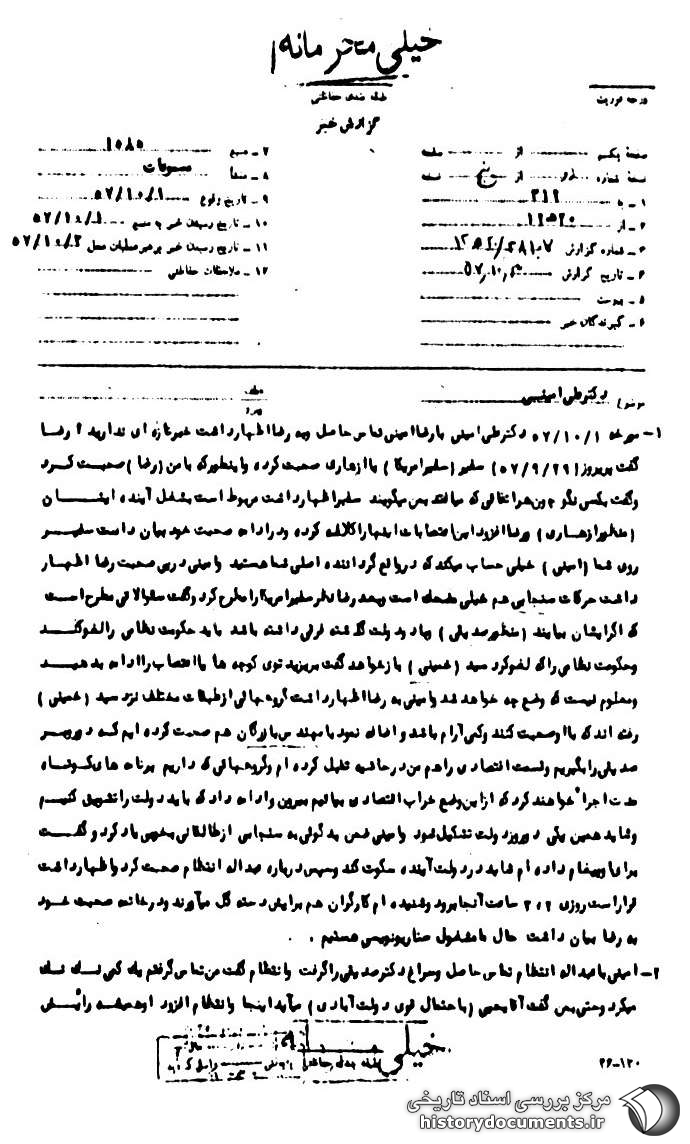 خیلی محرمانه
طبقه بندی حفاظتی
درجه فوریت
گزارش خبر
صفحه یکم از صفحه
نسخه شماره از پنج نسخه
۱ - به ۳۱۲
۲ - از
۳ - شماره گزارش
۴ - تاریخ گزارش
۵ - پیوست
۶ - گیرندگان خبر
۷ - منبع ۱۵۸۵
۸ - منشأ مسموعات
۹ - تاریخ وقوع ۵۷/۱۰/۱
۱۰ - تاریخ رسیدن خبر به منبع ۵۷/۱۰/۱
۱۱ - تاریخ رسیدن خبر برهبرعملیات محل ۵۷/۱۰/۲
۱۲ - ملاحظات حفاظتی
موضوع دکترعلی امینی
۱- مورخه ۵۷/۱۰/۱ دکترعلی امینی با رضا امینی تماس حاصل وبه رضا اظهارداشت خبرتازه ای ندارید ؟ رضا
گفت پریروز (۵۷/۹/۲۹) سفیر (سفیرامریکا) با ازهاری صحبت کرده و اینطورکه با من (رضا) صحبت کرد
وگفت بکس نگو چون هراتفاقی که میافتد بمن میگویند سفیراظهارداشت مربوط است بشغل آینده ایشان
(منظورازهاری) ورضا افزود این اعتصابات اینها را کلافه کرده ودرادامه صحبت خود بیان داشت سفیر
روی شما (امینی) خیلی حساب میکند که در واقع گرداننده اصلی شما هستید وامینی درپی صحبت رضا اظهار
داشت حرکات سنجابی هم خیلی مضحک است وبعد رضا نظرسفیرامریکا را مطرح کرد وگفت سئوالاتی مطرح است
که اگرایشان بیایند (منظورصدیقی) وباید دولت گذشته فرقی داشته باشد باید حکومت نظامی را لغوکند
وحکومت نظامی را که لغوکرد سید (خمینی) بازخواهد گفت بریزید توی کوچه ها یا اعتصاب را ادامه بدهید
ومعلوم نیست که وضع چه خواهد شد وامینی به رضا اظهارداشت گروه هائی ازطبقات مختلف نزد سید (خمینی)
رفته اند که با او صحبت کنند وکمی آرام باشد و اضافه نمود با مهندس بازرگان هم صحبت کرده ایم که دوروبر
صدیقی را بگیریم وقسمت اقتصادی را هم من درحاشیه قبول کرده ام وگروههائی که داریم برنامه های کوتاه
مدت اجرا خواهند کرد که از این وضع خراب اقتصادی بیائیم بیرون وادامه داد که باید دولت را تشویق کنیم
وشاید همین یکی دوروزه دولت تشکیل شود وامینی ضمن بدگوئی به سنجابی ازطالقانی بخوبی یاد کرد وگفت
برای اوپیغام داده ام شاید در دولت آینده سکوت کند وسپس درباره عبداله انتظام صحبت کرد واظهارداشت
قراراست روزی ۲،۳ ساعت آنجا برود وشنیده ام کارگران هم برایش دسته گل میآورند ودرخاتمه صحبت خود
به رضا بیان داشت حال ما مشغول سناریونویسی هستیم .
۲- امینی با عبداله انتظام تماس حاصل وسراغ دکترصدیقی را گرفت وانتظام گفت من تماس گرفتم یک کمی نک نک
میکرد وحتی بمن گفت آقا یحیی (باحتمال قوی دولت آبادی) میآید اینجا وانتظام افزود اوهمیشه
خیلی
۲۶-۱۲۰
مرکز بررسی اسناد تاریخی
historydocuments.ir